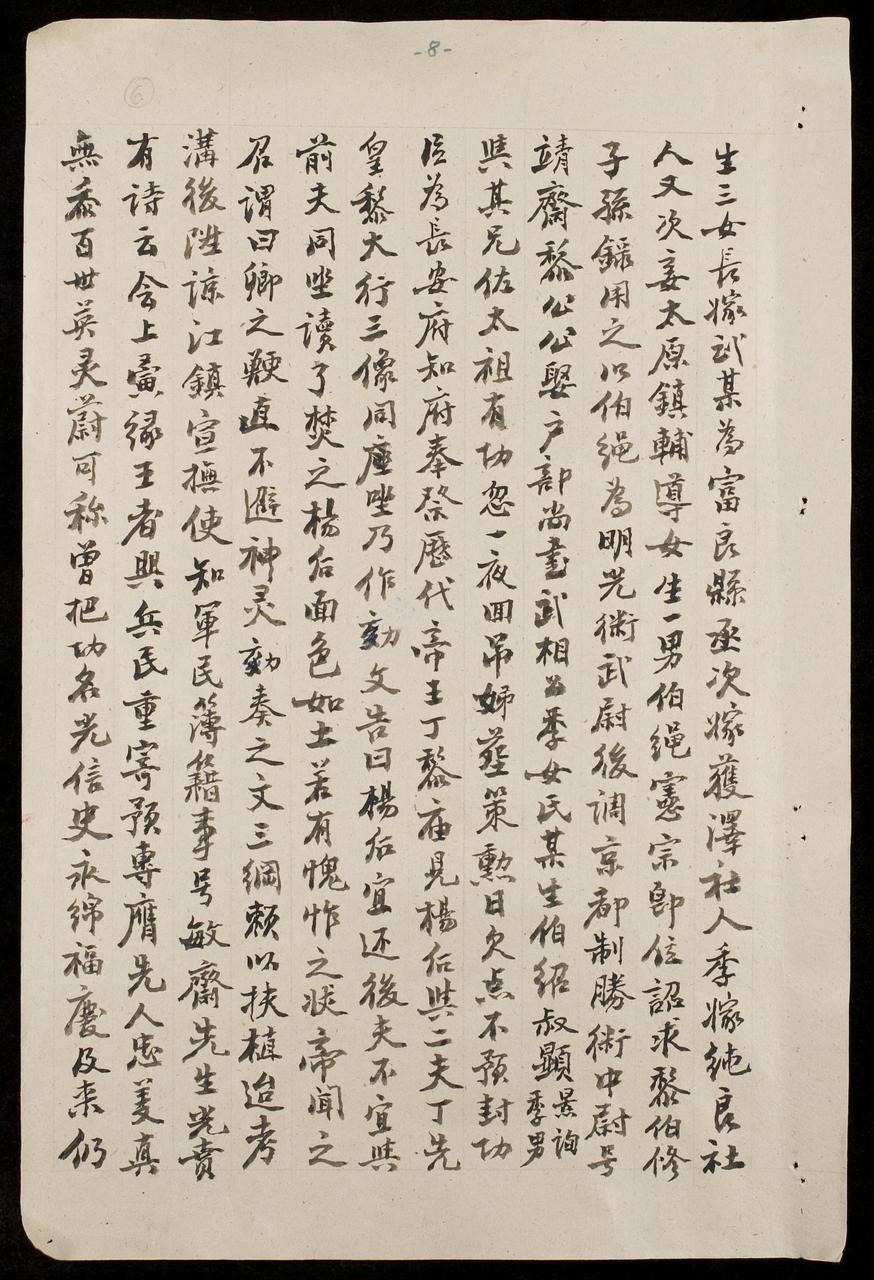 -8-
6
生三女長嫁武某為富良縣丞次嫁獲澤社人季嫁純良社
人又次妾太原鎮輔導女生一男伯繩憲宗即位詔求黎伯修
子孫錄用之以伯繩為明光衛武尉後調京都制勝衛中尉号
靖齋黎公公娶戶部尚書武相公季女氏某生伯紹叔顯景詢季男
與其兄佐太祖有功忽一夜回吊婦塟策勲日欠点不預封功
臣為長安府知府奉祭歷代帝王丁黎庙見楊后與二夫丁先
皇黎大行三像同座坐乃作劾文告曰楊后宜还後夫不宜與
前夫同坐讀了焚之楊后面色如土若有愧怍之狀帝聞之
召謂曰卿之鞕直不避神灵劾奏之文三綱賴以扶植迨考
溝後陞諒江鎮宣撫使知軍民簿籍事号敏齋先生光賁
有詩云会上夤緣王者興兵民重寄預專膺先人忠美真
無忝百世英灵蔚可称曾把功名光信史永綿福慶及来仍